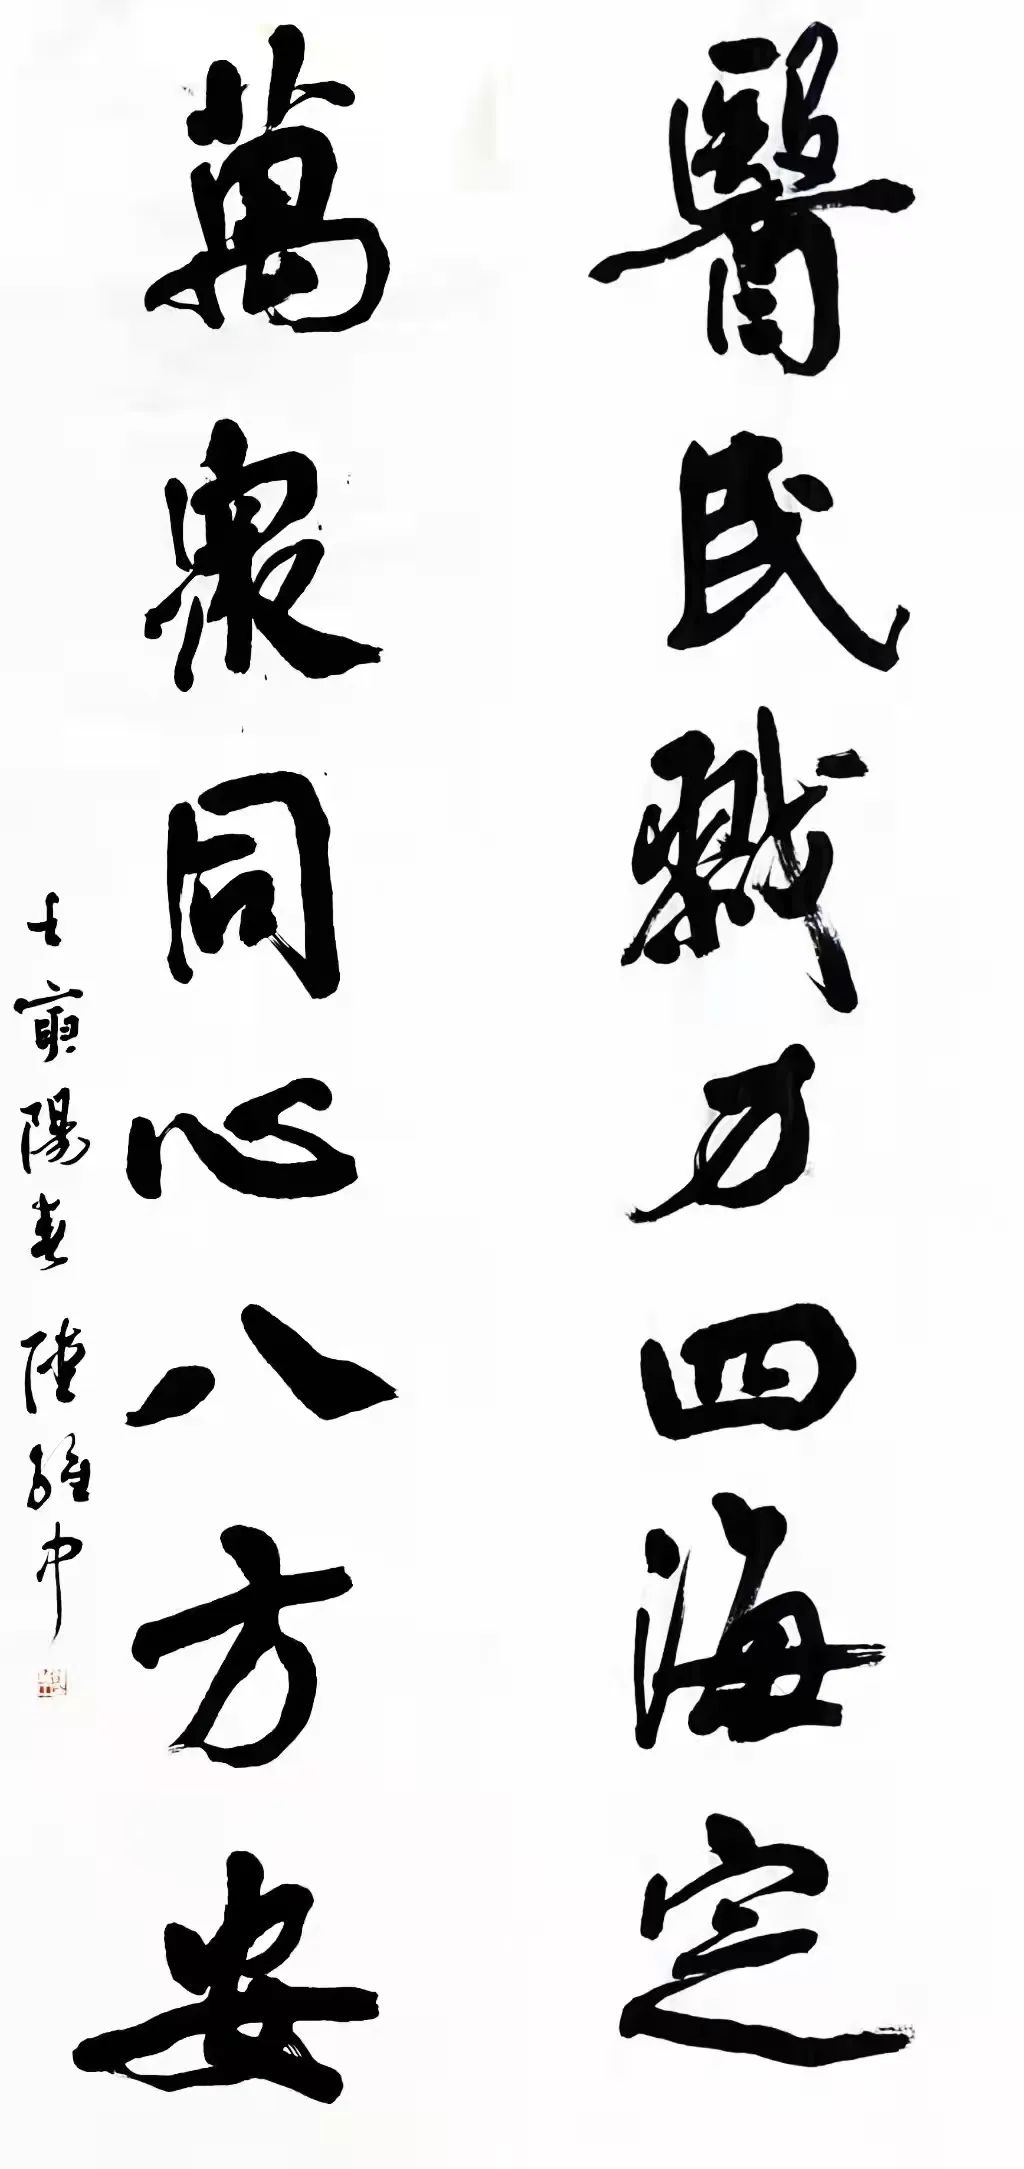 醫民戮力四海定
萬衆同心八方安
壬寅陽春 陸維中